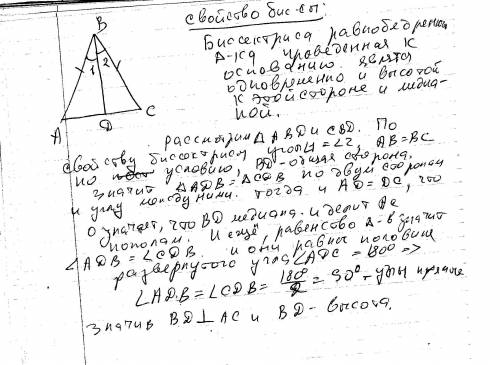 B
1 2
A
D
C
свойство бис-сы:
Биссектриса равнобедренн
Δ-ка проведенная к
основанию являтся
одновременно и высотой
к этой стороне и медиа-
ной.
рассмотрим Δ ABD и CBD. По
свойству биссектрисы углы 1 = ∠2, AB=BC
по условию, BD - общая сторона.
значит ΔADB = ΔCDB по двум сторонам
и углу между ними. Тогда и AD = DC, что
означает, что BD медиана и делит AC
пополам. И ещё, равенство Δ-в значит
∠ADB = ∠CDB и они равны половине
развернутого угла ∠ADC = 180° =>
∠ADB = ∠CDB = 180°/2 = 90° - углы прямые
значит BD ⊥ AC и BD - высота.